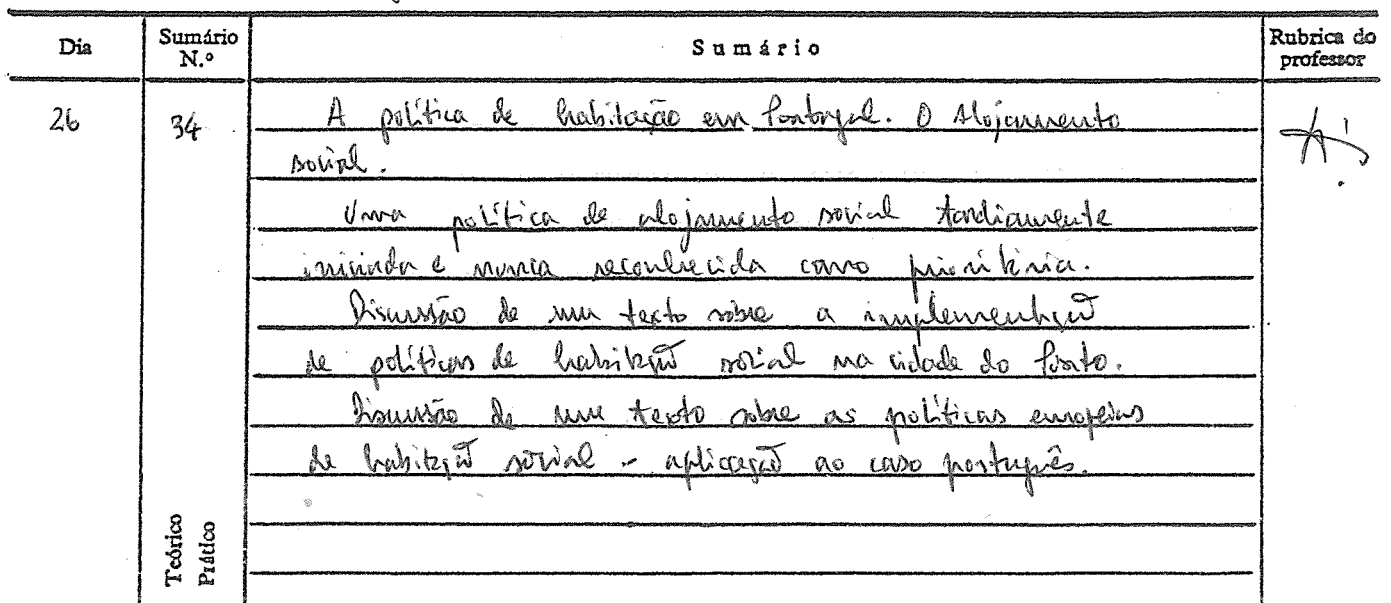 Dia
Sumário N.º
Sumário
Rubrica do professor
26
34
A política de habitação em Portugal. O Alojamento
social.
Uma política de alojamento social tardiamente
iniciada e nunca reconhecida como prioritária.
Discussão de um texto sobre a implementação
de políticas de habitação social na cidade do Porto.
Discussão de um texto sobre as políticas europeias
de habitação social - aplicação ao caso português.
Teórico
Prático